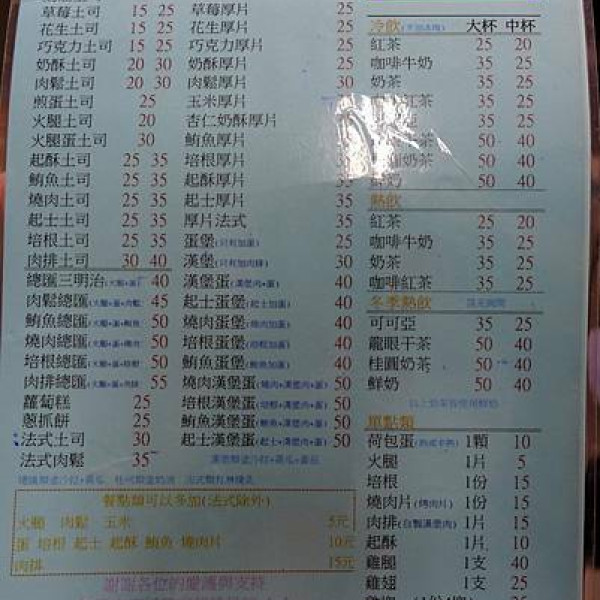 草莓土司 15 25
花生土司 15 25
巧克力土司 15 25
奶酥土司 20 30
肉鬆土司 20 30
煎蛋土司 25
火腿土司 20
火腿蛋土司 30
起酥土司 25 35
鮪魚土司 25 35
燒肉土司 25 35
起士土司 25 35
培根土司 25 35
肉排土司 30 40
總匯三明治 40
肉鬆總匯 45
鮪魚總匯 50
燒肉總匯 50
培根總匯 50
肉排總匯 55
蘿蔔糕 25
蔥抓餅 25
法式土司 30
法式肉鬆 35
草莓厚片 25
花生厚片 25
巧克力厚片 25
奶酥厚片 25
肉鬆厚片 30
玉米厚片
杏仁奶酥厚片
鮪魚厚片
培根厚片
起酥厚片 35
起士厚片 35
厚片法式 35
蛋堡(只有加蛋) 25
漢堡(只有加肉排) 30
漢堡蛋(漢堡肉+蛋) 40
起士蛋堡(起士加蛋) 40
燒肉蛋堡(燒肉加蛋) 40
培根蛋堡(培根加蛋) 40
鮪魚蛋堡(鮪魚加蛋) 40
燒肉漢堡蛋(燒肉+漢堡肉+蛋) 50
培根漢堡蛋(培根+漢堡肉+蛋) 50
鮪魚漢堡蛋(鮪魚+漢堡肉+蛋) 50
起士漢堡蛋(起士+漢堡肉+蛋) 50
餐點類可以多加(法式除外)
火腿 肉鬆 玉米 5元
蛋 培根 起士 起酥 鮪魚 燒肉片 10元
肉排 15元
謝謝各位的愛護與支持
冷飲 大杯 中杯
紅茶 25 20
咖啡牛奶 35 25
奶茶 35 25
紅茶 35 25
35 25
50 40
奶茶 50 40
鮮奶 50 40
熱飲
紅茶 25 20
咖啡牛奶 35 25
奶茶 35 25
咖啡紅茶 35 25
冬季熱飲
可可亞 35 25
龍眼干茶 50 40
桂圓奶茶 50 40
鮮奶 50 40
單點類
荷包蛋(熟或半熟) 1顆 10
火腿 1片 5
培根 1份 15
燒肉片(烤肉片) 1份 15
肉排(台製漢堡肉) 1片 15
起酥 1片 10
雞腿 1支 40
雞翅 1支 25